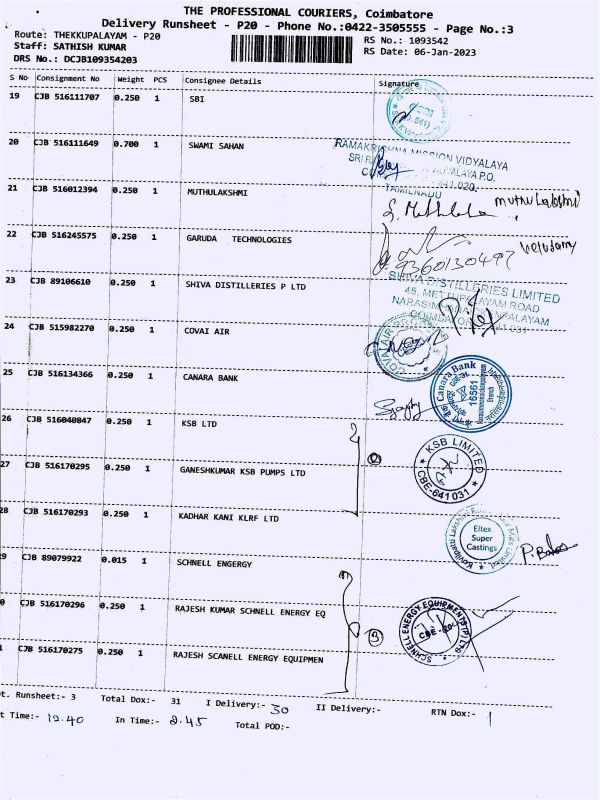 THE PROFESSIONAL COURIERS, Coimbatore
Delivery Runsheet - P20 - Phone No.:0422-3505555 - Page No.:3
Route: THEKKUPALAYAM - P20
RS No.: 1093542
Staff: SATHISH KUMAR
RS Date: 06-Jan-2023
DRS No.: DCJB109354203
S No Consignment No Weight PCS Consignee Details Signature
19 CJB 516111707 0.250 1 SBI
20 CJB 516111649 0.700 1 SWAMI SAHAN
RAMAKRISHNA MISSION VIDYALAYA
TAMILNADU
21 CJB 516012394 0.250 1 MUTHULAKSHMI
S. Muthulaksh muthulakshmi
22 CJB 516245575 0.250 1 GARUDA TECHNOLOGIES
9360130497
23 CJB 89106610 0.250 1 SHIVA DISTILLERIES P LTD
SHIVA DISTILLERIES LIMITED
24 CJB 515982270 0.250 1 COVAI AIR
COVAI AIR
25 CJB 516134366 0.250 1 CANARA BANK
Canara Bank
16561
26 CJB 516040847 0.250 1 KSB LTD
KSB LIMITED
CBE-641031
27 CJB 516170295 0.250 1 GANESHKUMAR KSB PUMPS LTD
28 CJB 516170293 0.250 1 KADHAR KANI KLRF LTD
Eltex
Super
Castings
9 CJB 89079922 0.015 1 SCHNELL ENGERGY
0 CJB 516170296 0.250 1 RAJESH KUMAR SCHNELL ENERGY EQ
3
SCHNELL ENERGY EQUIPMENTS (P) LTD
1 CJB 516170275 0.250 1 RAJESH SCANELL ENERGY EQUIPMEN
t. Runsheet:- 3 Total Dox:- 31 I Delivery:- 30 II Delivery:- RTN Dox:- 1
t Time:- 12.40 In Time:- 2.45 Total POD:-